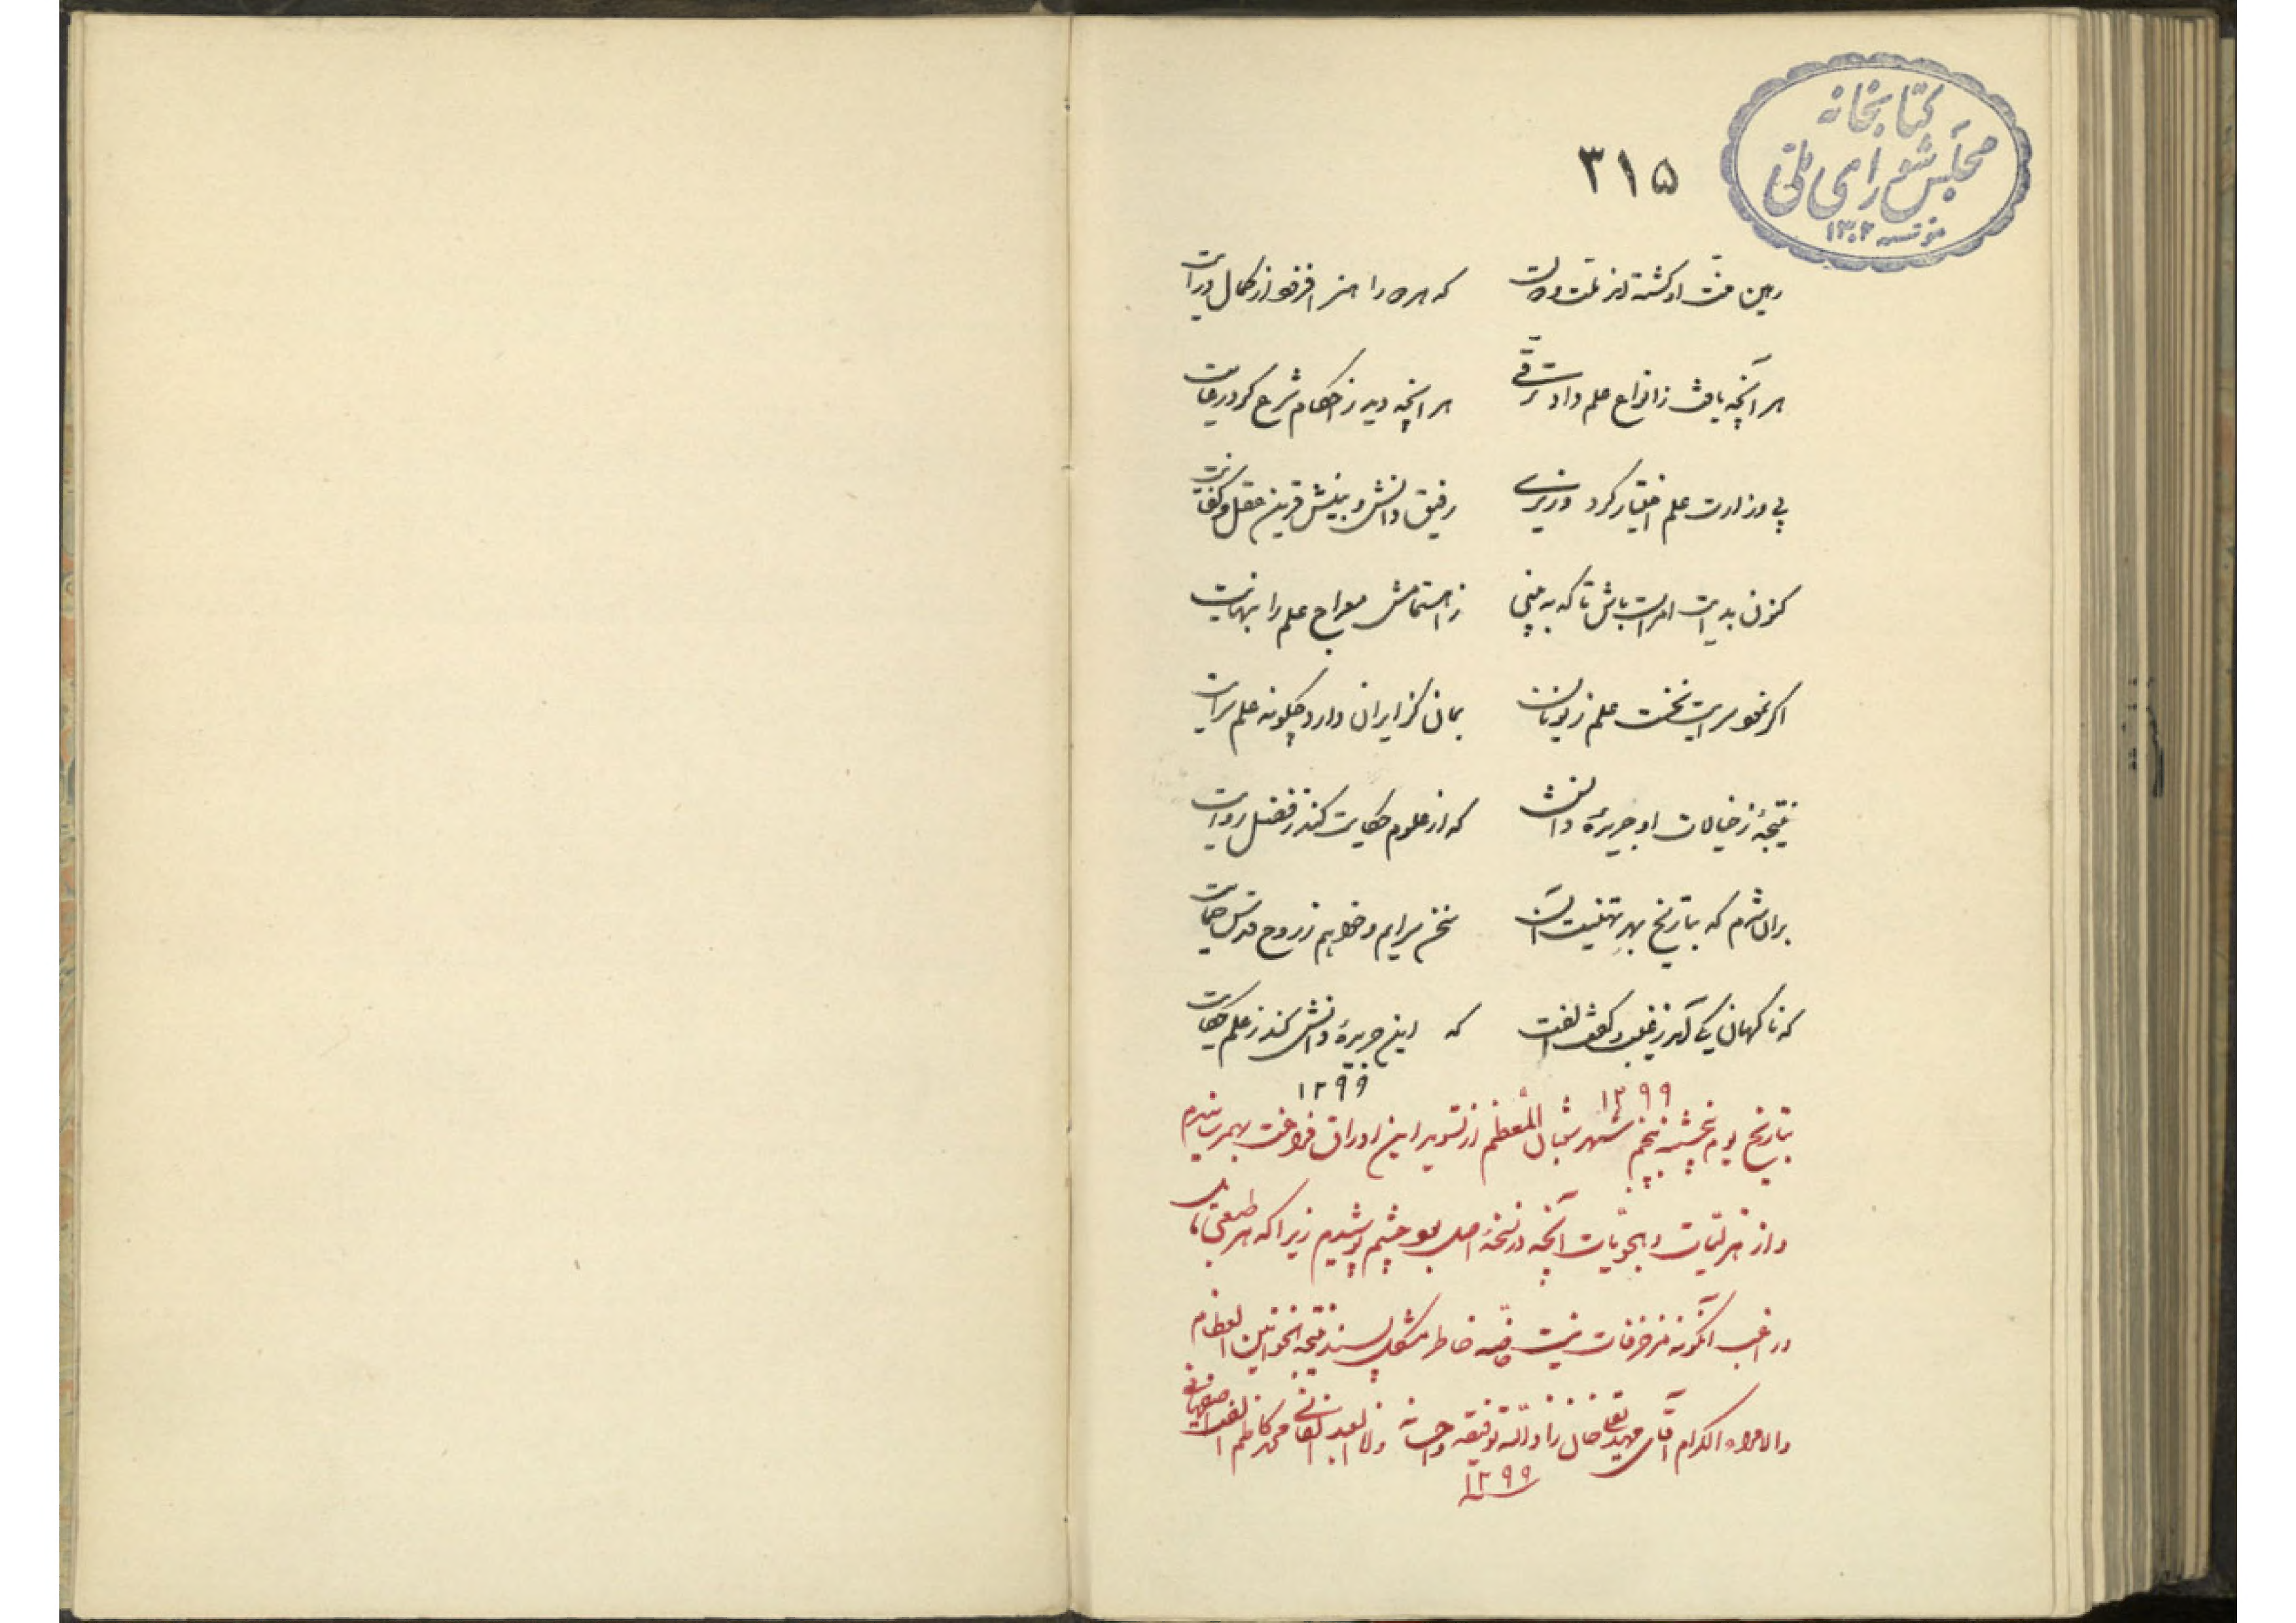 کتابخانه
مجلس شورای ملی
مؤسسه ۱۳۰۲
۳۱۵
رهین منت او گشته اند ملت و دولت که هر دو را هنر افزود از کمال درایت
هر آنچه یافت ز انواع علم داد ترقی هر آنچه دید ز احکام شرع کرد رعایت
پی وزارت علم اختیار کرد وزیری رفیق دانش و بینش قرین عقل و کفایت
کنون بدایت امر است باش تا که به بینی ز اهتمامش معراج علم را بنهایت
اگر نمود سرایت نخست علم ز یونان بمان کز ایران دارد چگونه علم سرایت
نتیجهٔ ز خیالات او جریدهٔ دانش که از علوم حکایت کند ز فضل روایت
بر آن شدم که بتاریخ بهر تهنیت آن سخن سرایم و خواهم ز روح قدس حمایت
که ناگهان یکی آمد ز غیب و گفت الفت که این جریدهٔ دانش کند ز علم حکایت
۱۲۹۹
۱۲۹۹
بتاریخ یوم پنجشنبه پنجم شهر شعبان المعظم از تسوید این اوراق فراغت بهم رسانیدم
و از هزلیات و هجویات آنچه در نسخهٔ اصل بود چشم پوشیدم زیرا که هر طبعی مایل
و راغب آنگونه مزخرفات نیست خاصه خاطر مشکل پسند نتیجة الخوانین العظام
والامراء الکرام آقای مهدیقلی خان زاد الله توفیقه و احسانه وانا العبد الفانی محمد کاظم الفت اصفهانی
۱۲۹۹